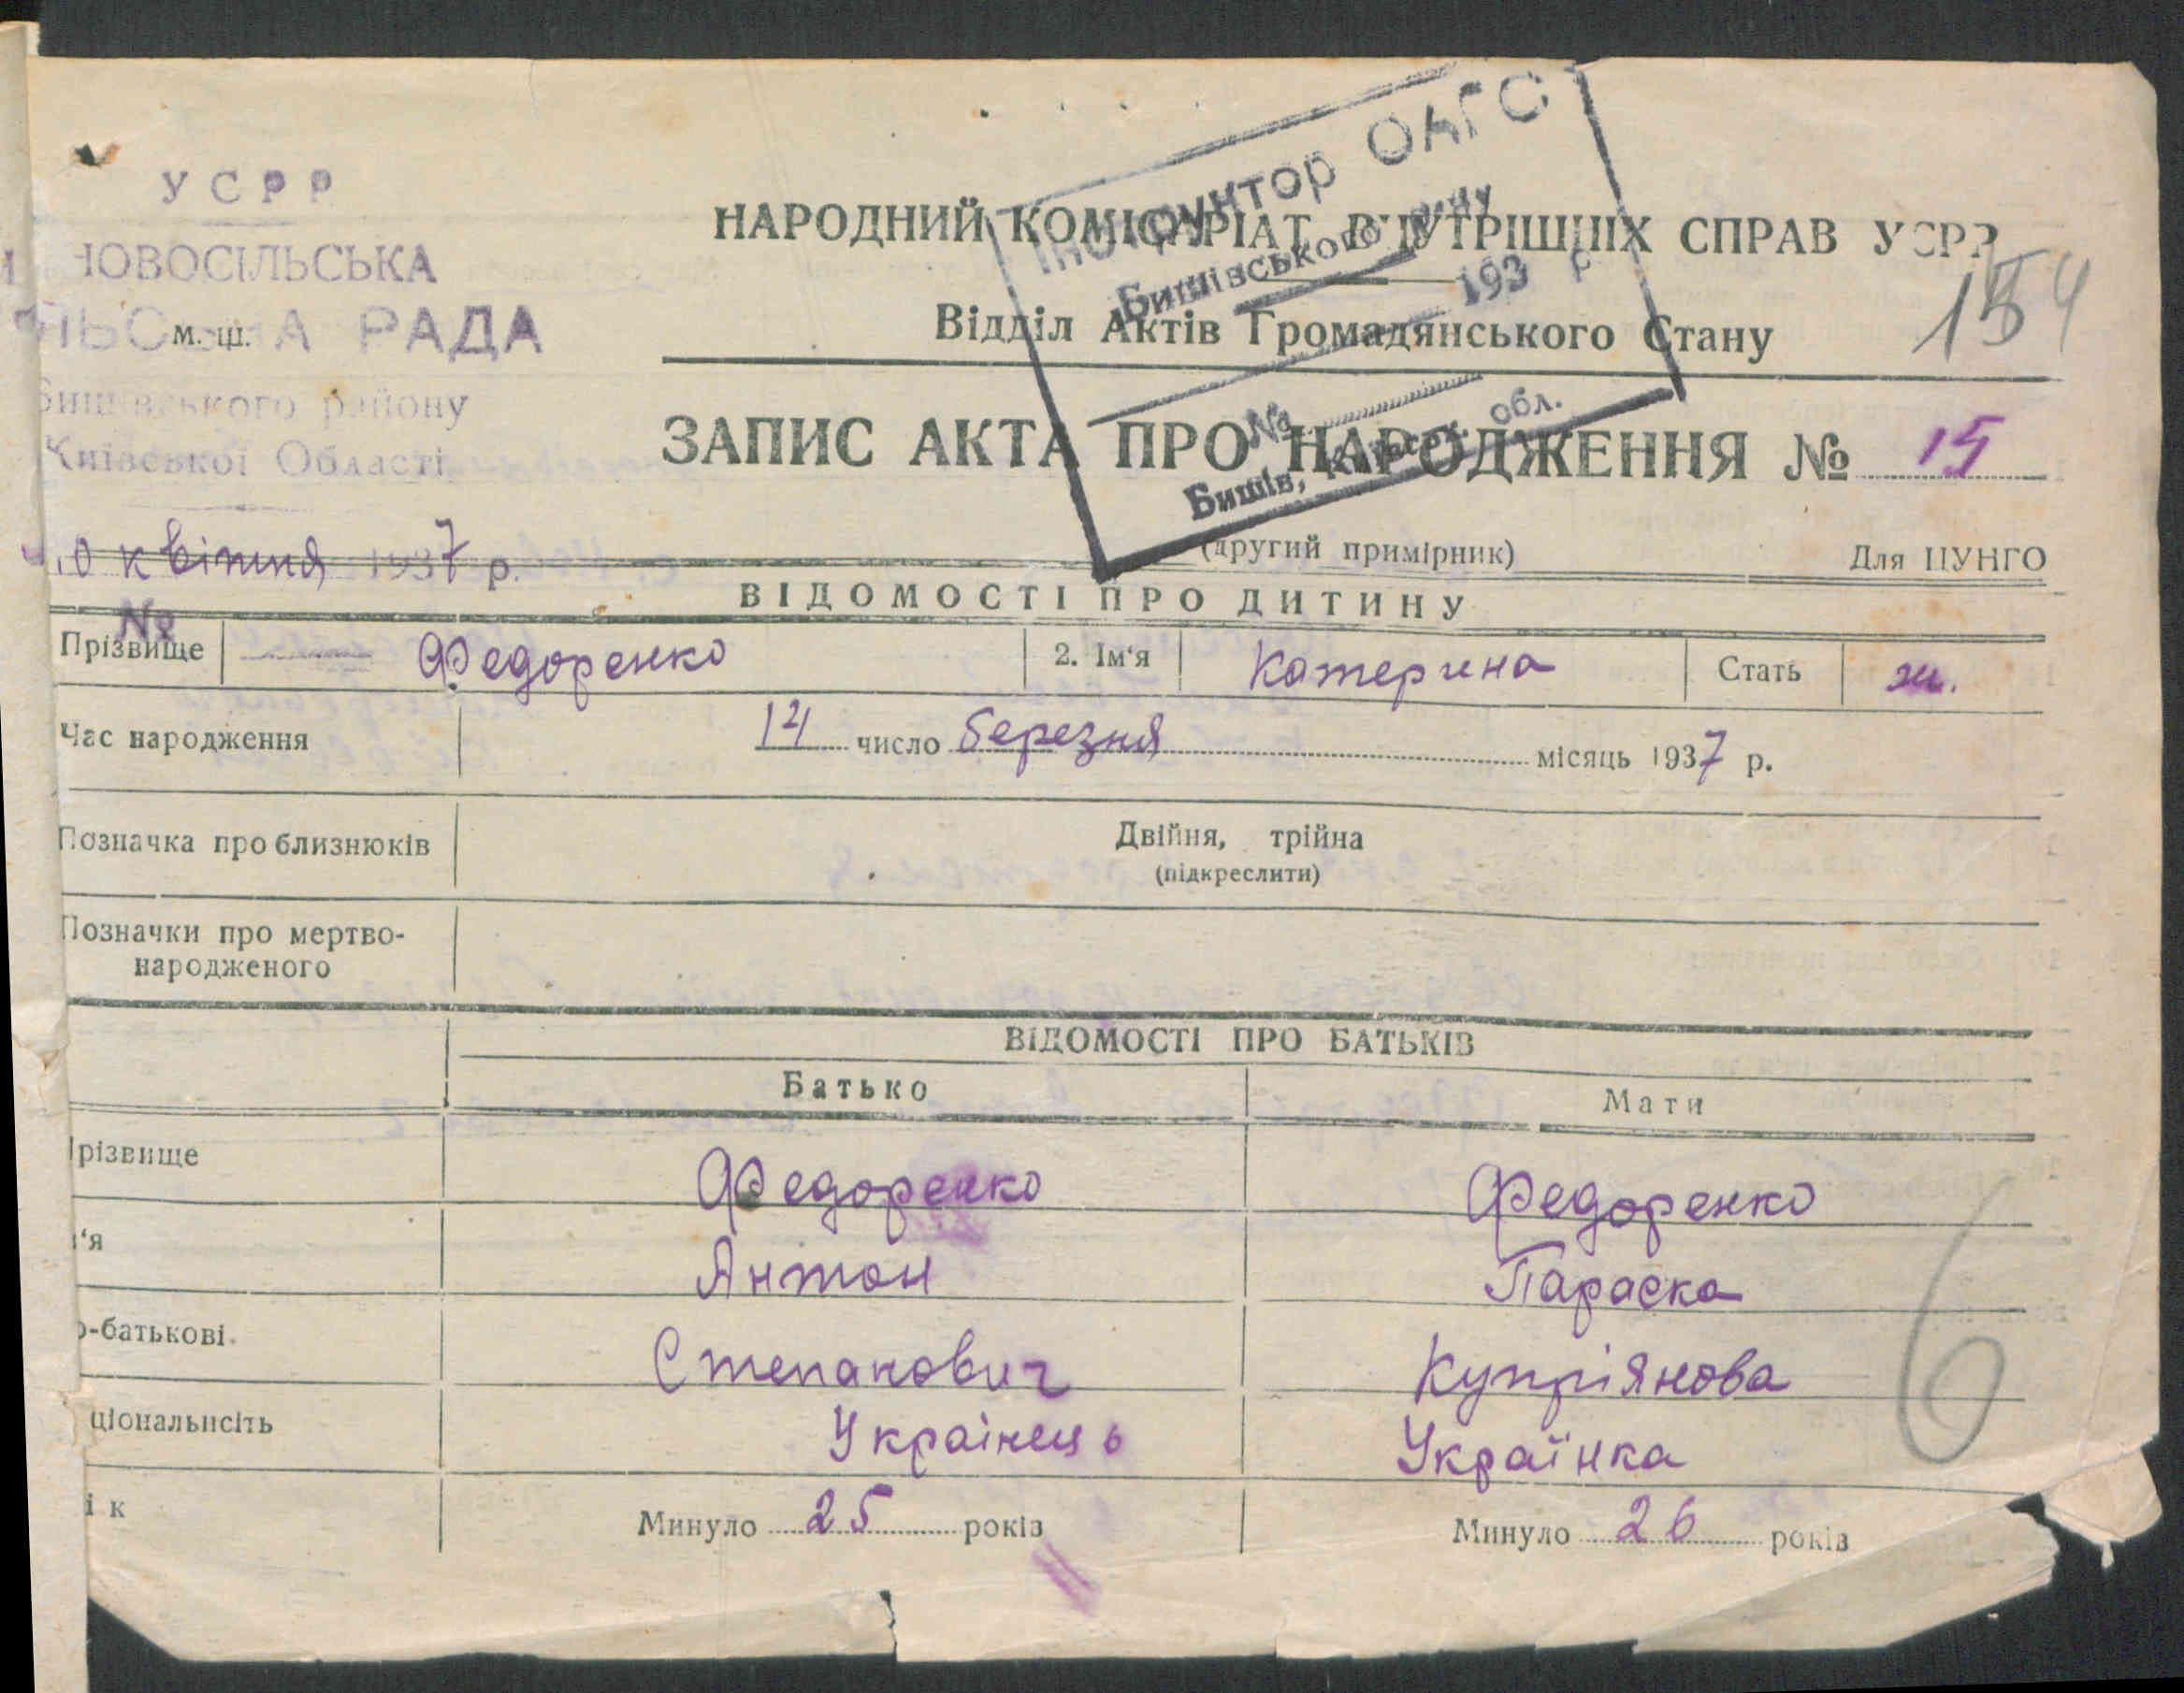 УСРР
НОВОСІЛЬСЬКА
РАДА
м. ш.
Бишівського району
Київської Області
10 квітня 1937 р.
№
Інструктор ОАГС
Бишівського р-ну
193 р.
№
Бишів, Київськ. обл.
НАРОДНИЙ КОМІСАРІАТ ВНУТРІШНІХ СПРАВ УСРР
154
Відділ Актів Громадянського Стану
ЗАПИС АКТА ПРО НАРОДЖЕННЯ № 15
(другий примірник) Для ЦУНГО
ВІДОМОСТІ ПРО ДИТИНУ
Прізвище Федоренко 2. Ім'я Катерина Стать ж.
Час народження 14 число березня місяць 1937 р.
Позначка про близнюків Двійня, трійна
(підкреслити)
Позначки про мертво-
народженого
ВІДОМОСТІ ПРО БАТЬКІВ
Батько Мати
різвище Федоренко Федоренко
'я Антон Параска
о-батькові Степанович Купріянова
ціональнсіть Украінець Українка
ік Минуло 25 років Минуло 26 років
6